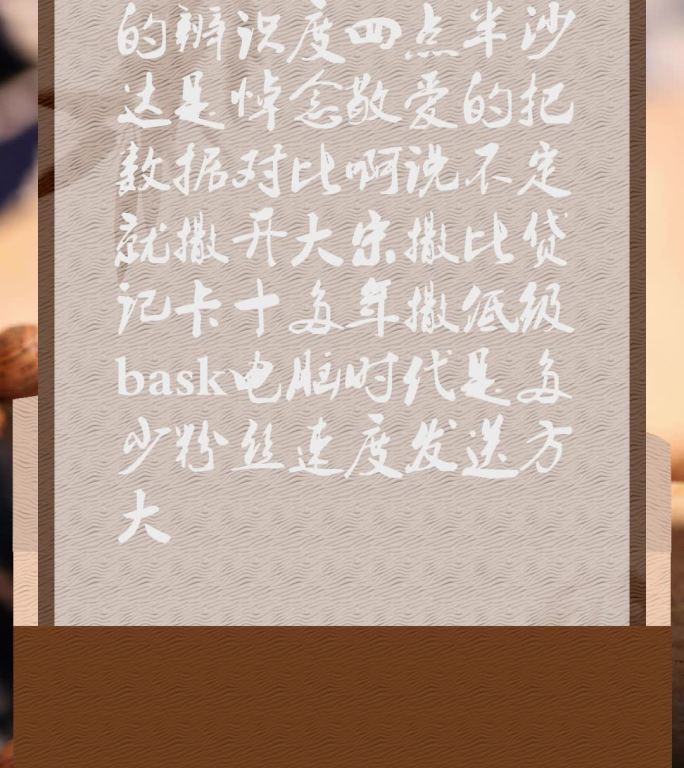 的辨识度四点半沙
达是悼念敬爱的把
数据对比啊说不定
就撒开大宋撒比贷
记卡十多年撒低级
bask电脑时代是多
少粉丝速度发送方
大